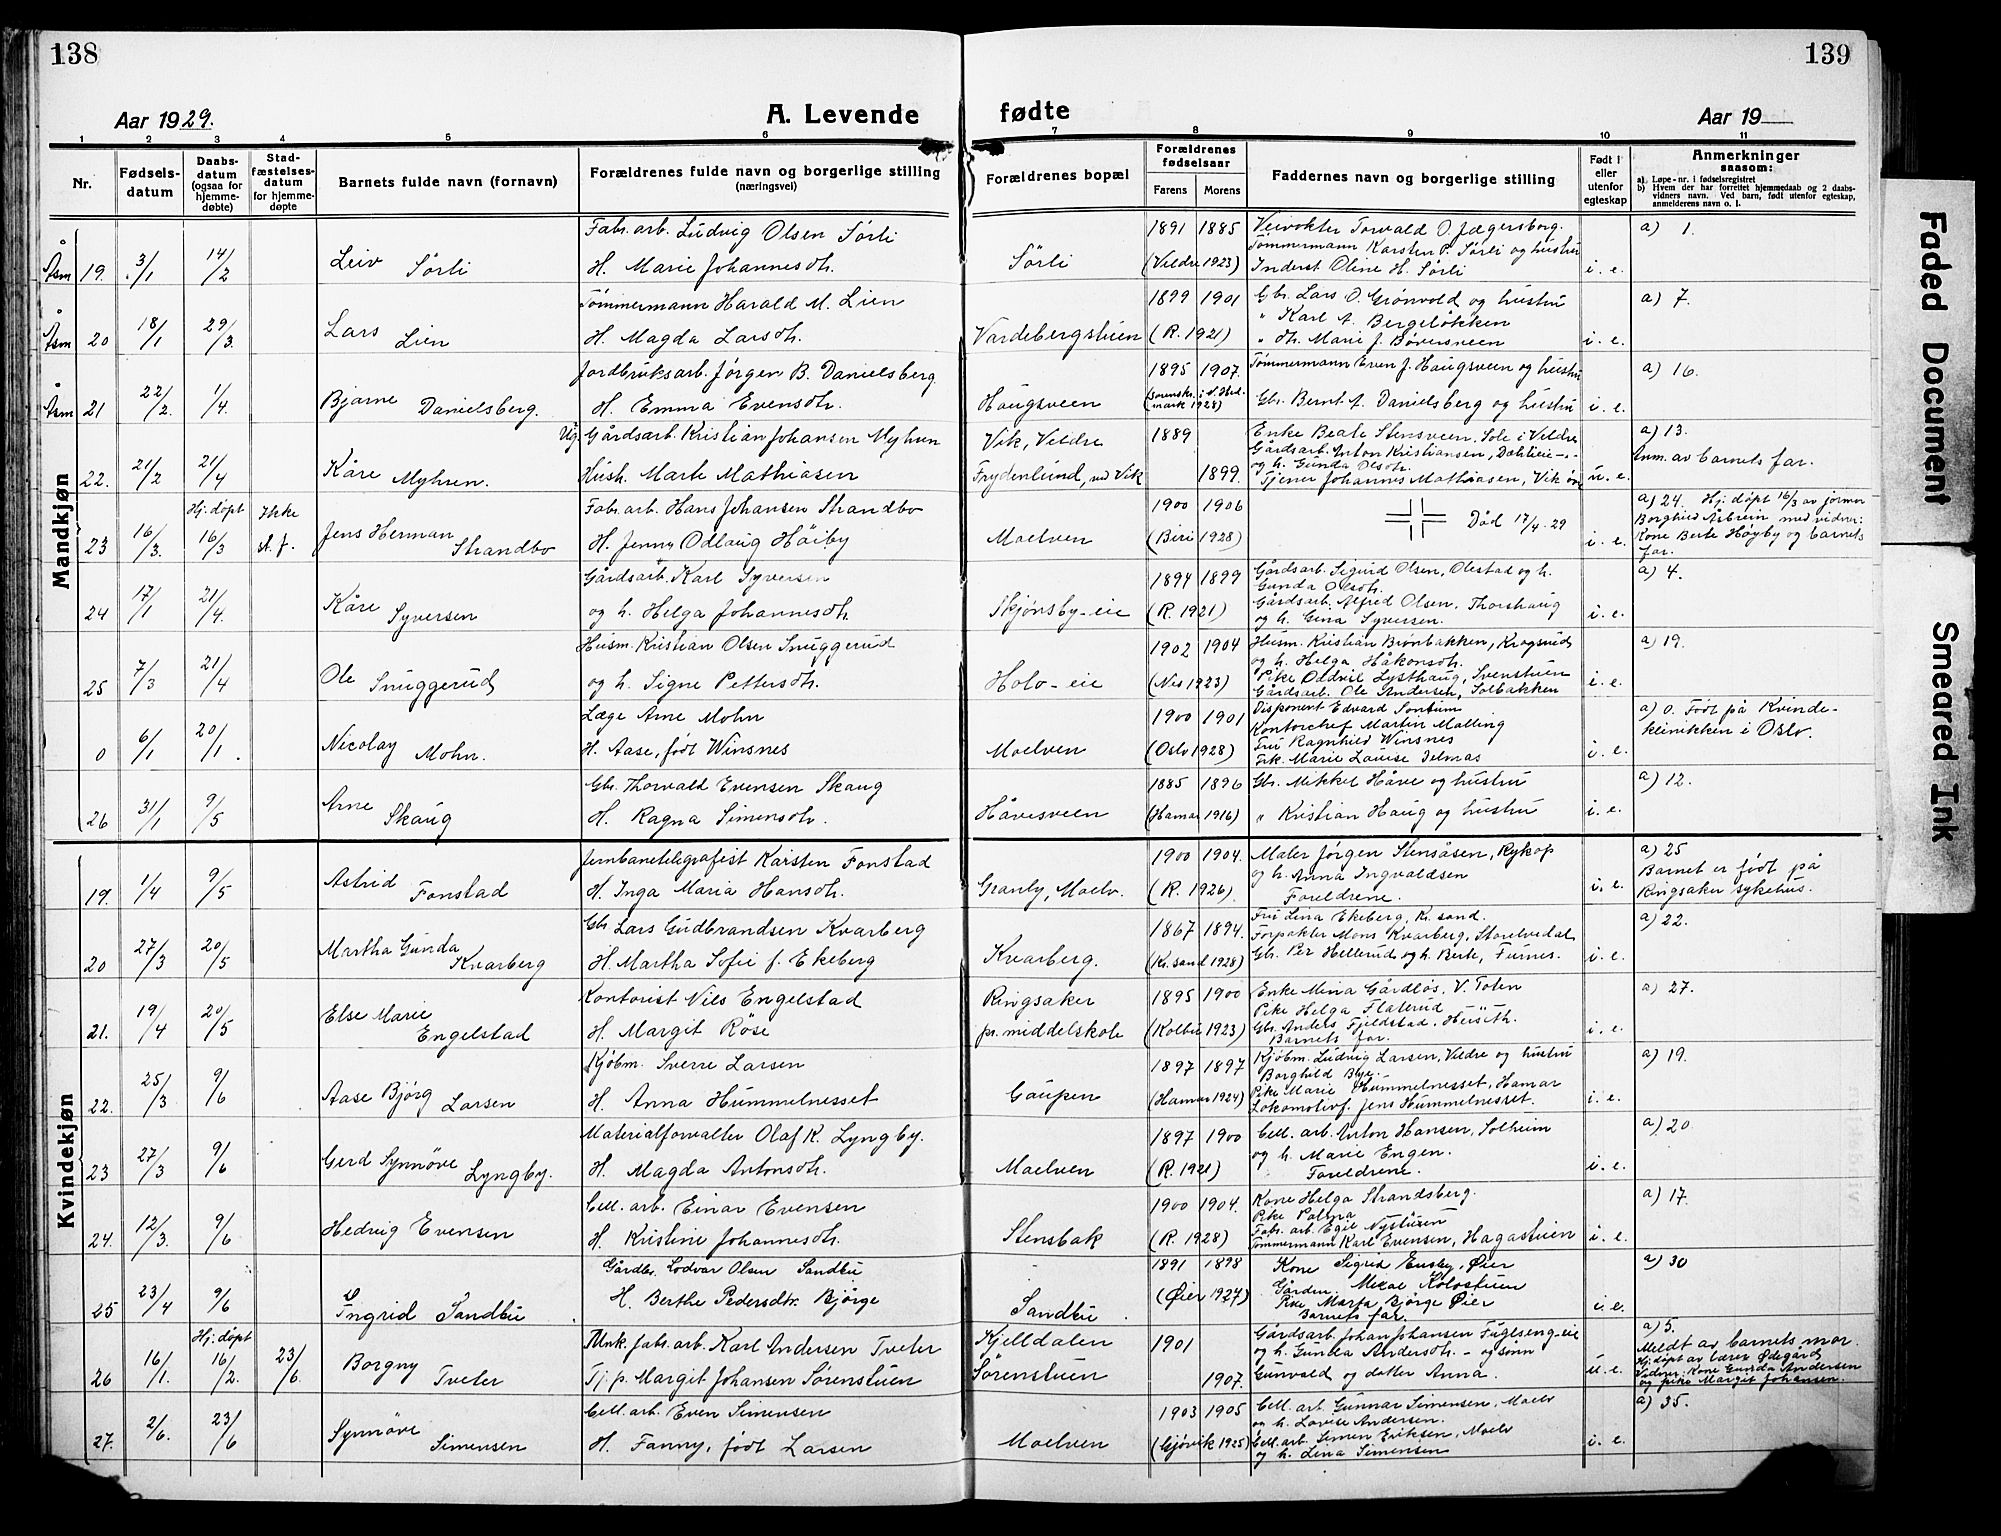 138
139
Aar 1929.
A. Levende fødte
Aar 19
1 2 3 4 5 6 7 8 9 10 11
Nr.
Fødsels-datum
Daabs-datum (ogsaa for hjemme-døbte)
Stad-fæstelses-datum for hjemme-døpte
Barnets fulde navn (fornavn)
Forældrenes fulde navn og borgerlige stilling (næringsvei)
Forældrenes bopæl
Forældrenes fødselsaar
Farens Morens
Faddernes navn og borgerlige stilling
Født i eller utenfor egteskap
Anmerkninger saasom:
a) Løpe-nr. i fødselsregistret
b) Hvem der har forrettet hjemmedaab og 2 daabs-vidners navn. Ved barn, født utenfor egteskap, anmelderens navn o. l.
Mandkjøn
Åsm 19. 3/1 14/2 Leiv Sørli
Fabr. arb. Ludvig Olsen Sørli
H. Marie Johannesdtr.
Sørli
1891 1885
(Veldre 1923)
Veivokter Torvald O. Jægersborg.
Tømmermann Karsten P. Sørli og hustru
Inderst Oline H. Sørli
i. e.
a) 1.
Åsm 20 18/1 29/3. Lars Lien
Tømmermann Harald M. Lien
H. Magda Larsdtr.
Vardebergstuen
1899 1901
(R. 1921)
Gbr. Lars O. Grønvold og hustru
" Karl A. Bergeløkken
" dtr. Marie J. Bøversveen
i. e.
a) 7.
Åsm 21 22/2. 1/4. Bjarne Danielsberg.
Jordbruksarb. Jørgen B. Danielsberg
H. Emma Evensdtr.
Haugsveen
1895 1907.
Tømmermann Even J. Haugsveen og hustru
Gbr. Bernt A. Danielsberg og hustru
i. e.
a) 16.
22. 21/2 21/4 Kåre Myhren.
Ug. Gårdsarb. Kristian Johansen Myhren
Hush. Marte Mathiasen
Vik, Veldre
Frydenlund, ved Vik
1889
1899.
Enke Beate Stensveen, Sole i Veldre
Gårdsarb. Anton Kristiansen, Dæhlieie
og h. Gunda Olsdtr.
Tjener Johannes Mathiasen, Vik
u. e.
a) 13.
Anm. av barnets far.
23 16/3. Hj. døpt 16/3 Ikke st. f. Jens Herman Strandbo
Fabr. arb. Hans Johansen Strandbo
H. Jenny Odlaug Høiby
Moelven
1900 1906
(Biri 1928)
Død 17/4. 29
i. e.
a) 24. Hj. døpt 16/3 av jormor
Borghild Åsbrein med vidner:
Kone Berte Høyby og barnets
far.
24 17/1 21/4. Kåre Syversen
Gårdsarb. Karl Syversen
og h. Helga Johannesdtr.
Skjønsby-eie
1894 1899
(R. 1921)
Gårdsarb. Sigurd Olsen, Olestad og h.
Gunda Olsdtr.
Gårdsarb. Alfred Olsen, Thorshaug
og h. Gina Syversen.
i. e.
a) 4.
25 7/3 21/4 Ole Snuggerud
Husm. Kristian Olsen Snuggerud
og h. Signe Pettersdtr.
Holo-eie
1902 1904
(Nes 1923)
Husm. Kristian Brønbakken, Krogsrud
og h. Helga Håkonsdtr.
Pike Oddveil Lysthaug, Svenstuen
Gårdsarb. Ole Andersen, Solbakken
i. e.
a) 19.
0 6/1 20/1. Nicolay Mohn.
Læge Arne Mohn
H. Aase, født Winsnes
Moelven
1900 1901
(Oslo 1928)
Disponent Edvard Sontum
Kontorchef Martin Malling
Fru Ragnhild Winsnes
Frk. Marie Louise Delmas
i. e.
a) 0. Født på Kvinde-
klinikken i Oslo.
26 31/1 9/5 Arne Skaug
Gbr. Thorvald Evensen Skaug
H. Ragna Simensdtr.
Håvesveen
1885 1896
(Hamar 1916)
Gbr. Mikkel Håve og hustru
" Kristian Haug og hustru
i. e.
a) 12.
Kvindekjøn
19. 1/4 9/5 Astrid Fonstad
Jernbanetelegrafist Karsten Fonstad
H. Inga Maria Hansdtr.
Granly, Moelv.
1900 1904.
(R. 1926)
Maler Jørgen Stensåsen, Rykop
og h. Anna Ingvaldsen
Foreldrene.
i. e.
a) 25
Barnet er født på
Ringsaker sykehus.
20 27/3 20/5 Martha Gunda Kvarberg
Gbr Lars Gudbrandsen Kvarberg
H. Martha Sofie f. Ekeberg
Kvarberg.
1867 1894.
(Kr. sand 1928)
Fru Lina Ekeberg, Kr. sand.
Forpakter Mons Kvarberg, Storelvedal
Gbr. Per Hellerud og h. Berte, Furnes.
i. e.
a) 22.
21. 19/4 20/5 Else Marie Engelstad
Kontorist Nils Engelstad
H. Margit Røse
Ringsaker
pr. middelskole
1895 1900
(Kolbu 1923)
Enke Mina Gårdløs, V. Toten
Pike Helga Flaterud
Gbr. Anders Fjeldstad,
Barnets far.
i. e.
a) 27.
22. 25/3 9/6 Aase Bjørg Larsen
Kjøbm. Sverre Larsen
H. Anna Hummelnesset
Gaupen
1897 1897
(Hamar 1924)
Kjøbm. Ludvig Larsen, Veldre og hustru
Borghild Bye.
Pike Marie Hummelnesset, Hamar
Lokomotivf. Jens Hummelnesset.
i. e.
a) 19.
23 27/3 9/6 Gerd Synnøve Lyngby.
Materialforvalter Olaf K. Lyngby.
H. Magda Antonsdtr.
Moelven
1897 1900
(R. 1921)
Cell. arb. Anton Hansen, Solheim
og h. Marie Engen.
Foreldrene.
i. e.
a) 20
24. 12/3. 9/6 Hedvig Evensen
Cell. arb. Einar Evensen
H. Kristine Johannesdtr.
Stensbak
1900 1904.
(R. 1928)
Kone Helga Strandsberg.
Pike Palma
Fabr. arb. Egil Nystuen
Tømmermann Karl Evensen, Hagastuen
i. e.
a) 17.
25 23/4 9/6 Ingrid Sandbu
Gårdbr. Lodvar Olsen Sandbu
H. Berthe Pedersdtr. Bjørge
Sandbu
1891 1898
(Øier 1924)
Kone Sigrid Ensby, Øier
Gården, Mikal Kolostuen
Pike Marta Bjørge Øier
Barnets far.
i. e.
a) 30
26 16/1. Hj. døpt 16/2. 23/6. Borgny Tveter
Unk. fabr. arb. Karl Andersen Tveter
Tj. p. Margit Johansen Sørenstuen
Kjelldalen
Sørenstuen
1901
1907.
Gårdsarb. Johan Johansen Fuglseng-eie
og h. Gunda Andersdtr. - og sønn
Gunvald og datter Anna.
u. e.
a) 5.
Meldt av barnets mor.
Hj. døpt av lærer Ødegård
Vidner: Kone Gunda Andersen
og pike Margit Johansen.
27. 2/6. 23/6 Synnøve Simensen
Cell. arb. Even Simensen
H. Fanny, født Larsen
Moelven
1903 1905
(Gjøvik 1925)
Cell. arb. Gunnar Simensen, Moelv
og h. Lovise Andersen.
Cell. arb. Simen Eriksen, Moelv
og h. Lina Simensen
i. e.
a) 35.
Faded Document
Smeared Ink